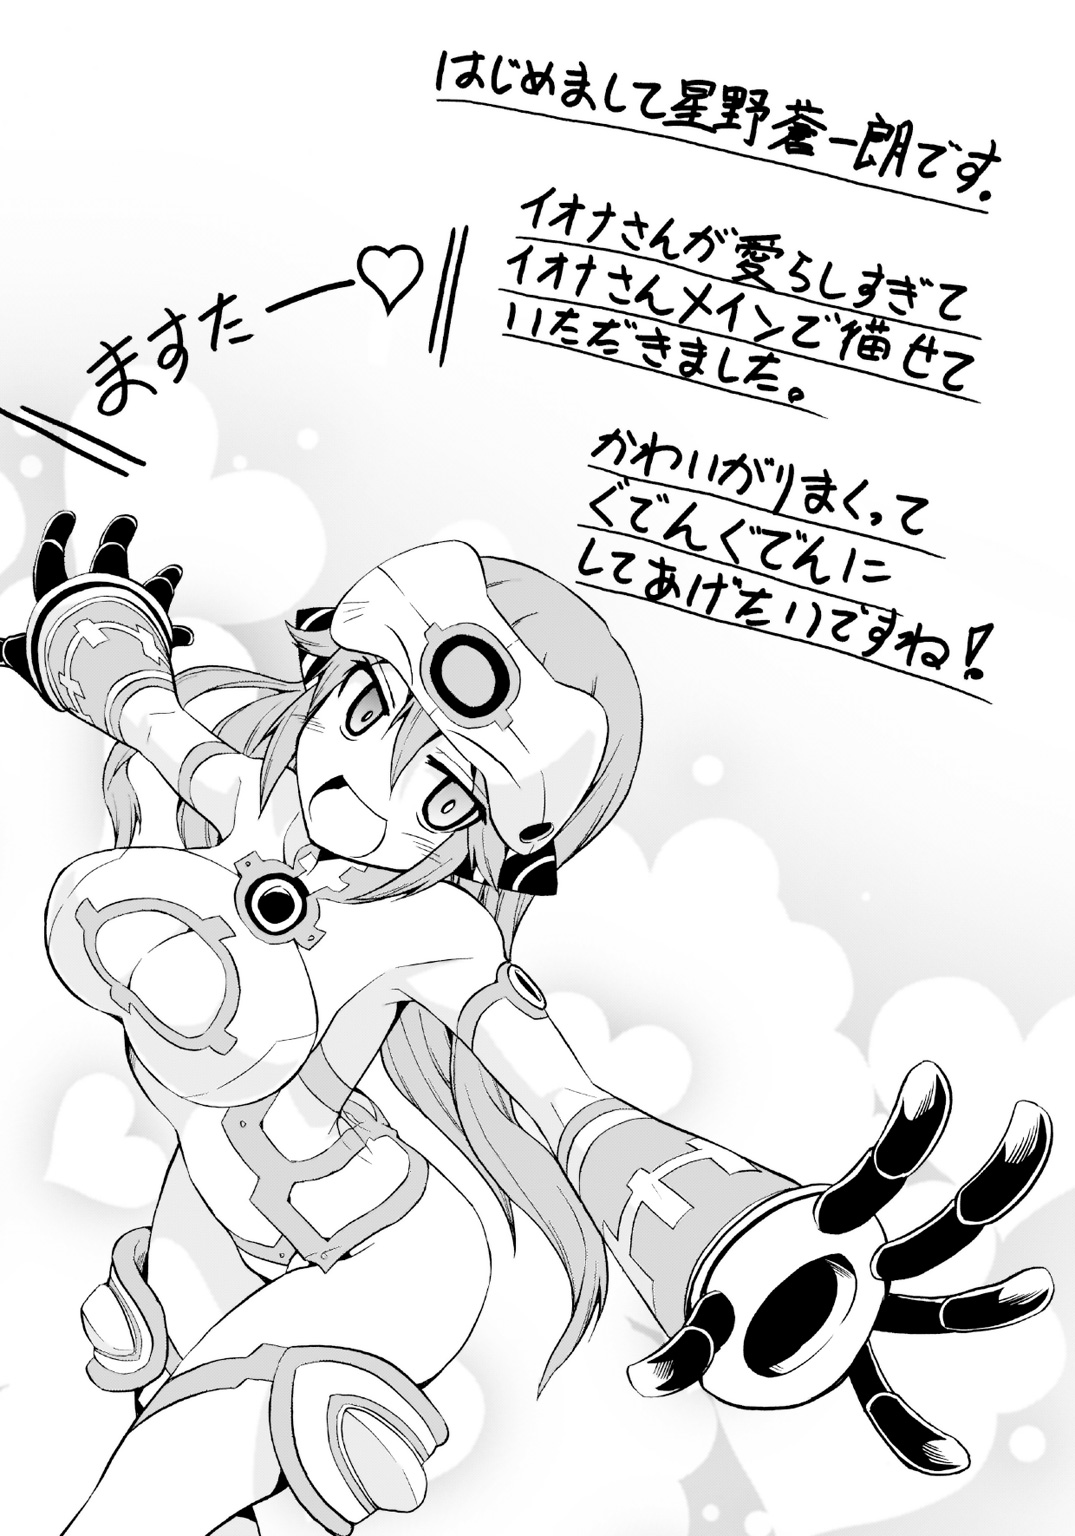 はじめまして星野蒼一朗です.
イオナさんが愛らしすぎて
イオナさんメインで描せて
いただきました。
ますたー♡
かわいがりまくって
ぐでんぐでんに
してあげたいですね!